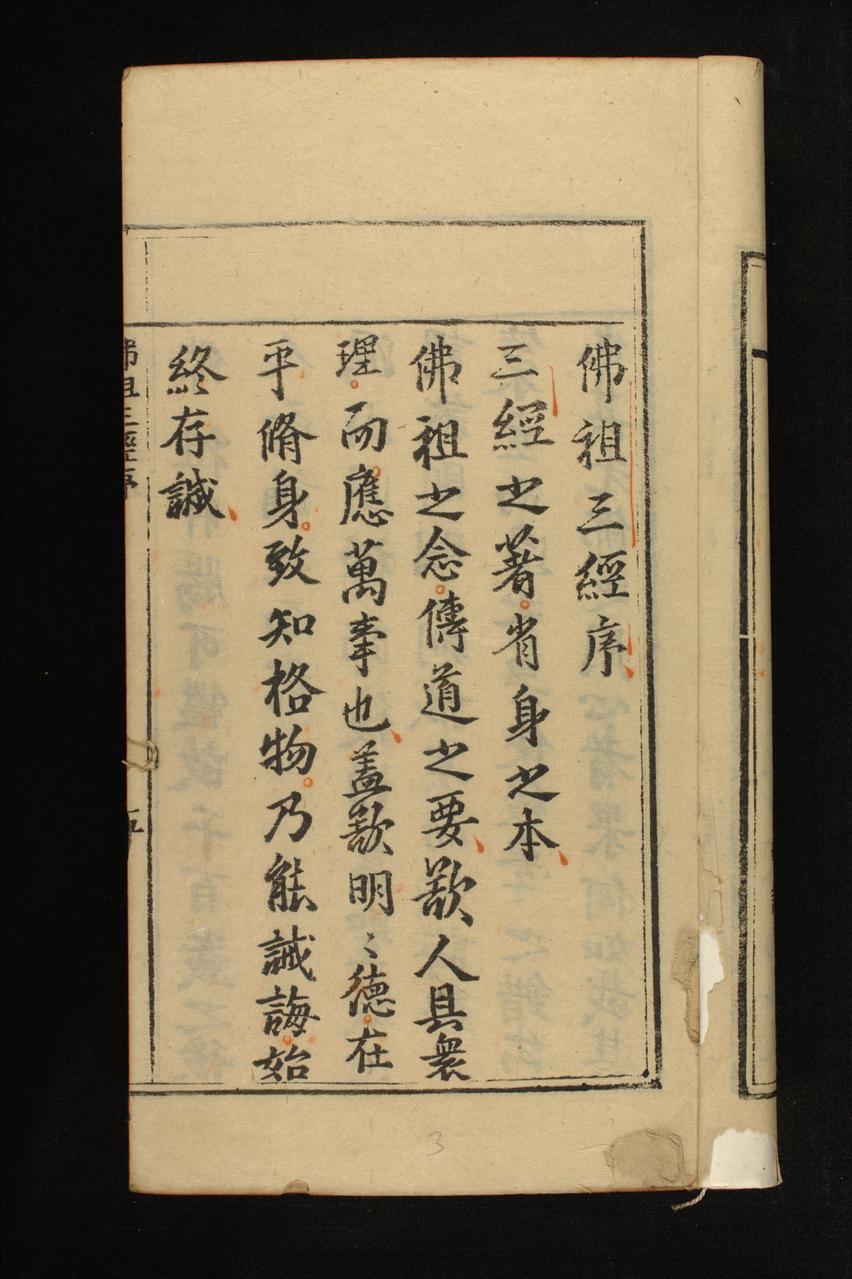 佛祖三經序
三經之著省身之本
佛祖之念傳道之要歎人具衆
理而應萬事也蓋歎明〻德在
乎脩身致知格物乃能誡誨始
終存誠
佛祖三經序
五